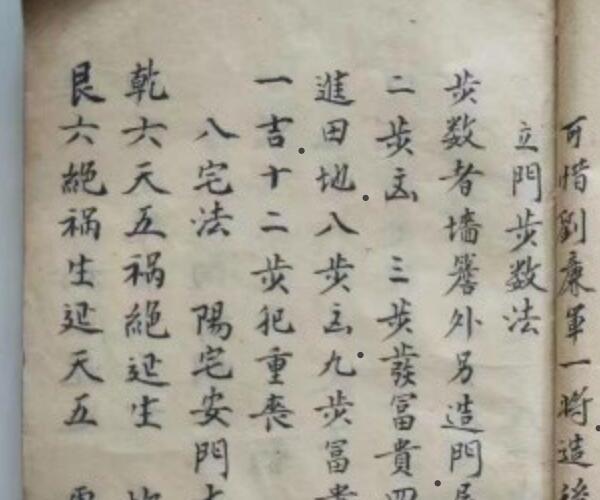 可惜劉廉軍一將造後
立門步数法
步数者墻簷外另造門
二步凶 三步發冨貴四
進田地八步凶九步冨貴
一吉十二步犯重喪
八宅法 陽宅安門
乾六天五禍絕延生
艮六絕禍生延天五